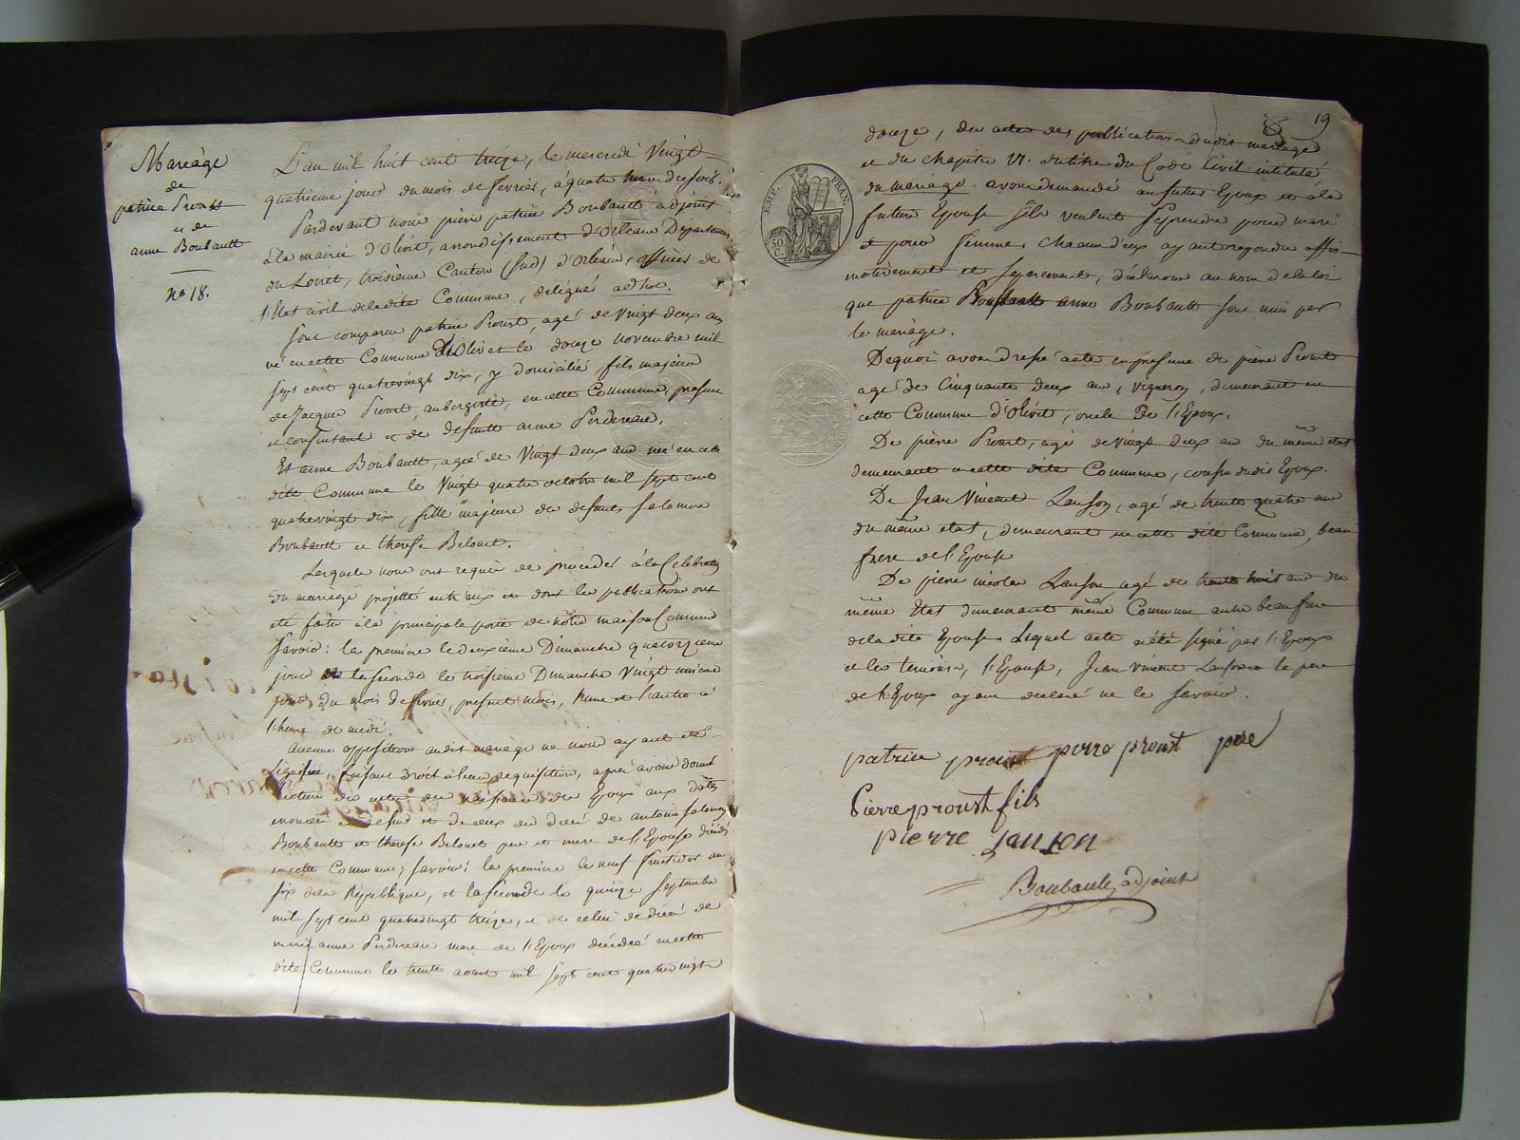 Mariage
de
patrice Proust
et de
anne Boubault
no 18.
L'an mil huit cent treize, le mercredi Vingt
quatrieme jour du mois de fevrier, à quatre heure du soir.
Pardevant nous pierre patrice Boubault adjoint
à la mairie d'Olivet, arrondissement d'Orléans Departement
du Loiret, troisieme Canton (sud) d'Orléans, officier de
l'Etat civil de ladite Commune, délégué ad hoc.
sont comparu patrice Proust, agé de Vingt deux ans
né en cette Commune d'Olivet le douze novembre mil
sept cent quatrevingt dix, y domicilié, fils majeur
de Jacques Proust, aubergiste, en cette Commune, present
et consentant et de defunte anne Perdereau.
Et anne Boubault, agée de Vingt deux ans née en cette
dite Commune le Vingt quatre octobre mil sept cent
quatrevingt dix, fille majeure de defunts salomon
Boubault et therese Belouet.
Lesquels nous ont requis de proceder à la Celebration
du mariage projetté entr'eux et dont les publications ont
été faites à la principale porte de notre maison Commune
savoir: la premiere le deuxieme Dimanche quatorzieme
jour et la seconde le troisieme Dimanche Vingt unieme
jour du mois de fevrier, present mois, l'une et l'autre à
l'heure de midi.
Aucune opposition audit mariage ne nous ayant été
signifiée, faisant droit à leur requisition, après avoir donné
lecture des actes de naissance des Epoux aux dates
de ceux de décès de antoine salomon
Boubault et therese Belouet pere et mere de l'Epouse décédés
en cette Commune, savoir: la premiere le neuf fructidor an
six de la République, et la seconde le quinze septembre
mil sept cent quatrevingt treize, et de celui de décès de
marie anne Perdereau mere de l'Epoux décédée en cette
dite Commune le trente aoust mil sept cent quatrevingt
19
douze, des actes des publications dudit mariage
et du chapitre VI. du titre du Code Civil intitulé
du mariage. avons demandé au futur Epoux et à la
future Epouse s'ils veulent se prendre pour mari
et pour femme, chacun d'eux ayant repondu affir-
mativement et separement, déclarons au nom de la loi
que patrice anne Boubault sont unis par
le mariage.
EMP. FRAN.
50 C.
De quoi avons dressé acte en presence de pierre Proust
agé de Cinquante deux ans, vigneron, demeurant en
cette Commune d'Olivet, oncle De l'Epoux.
De pierre Proust, agé de vingt deux ans du même etat
demeurant en cette dite Commune, cousin dudit Epoux.
De Jean Vincent Lanson, agé de trente quatre ans
du même etat, demeurant en cette dite Commune, beau
frere de l'Epouse
De pierre nicolas Lanson agé de trente huit ans du
même Etat demeurant même Commune autre beau frere
de la dite Epouse. Lequel acte a été signé par l'Epoux
et les temoins, l'Epouse, Jean Vincent Lanson et le pere
de l'Epoux ayant declaré ne le savoir.
patrice proust pierre proust pere
Pierre proust fils
pierre Lanson
Boubault, adjoint